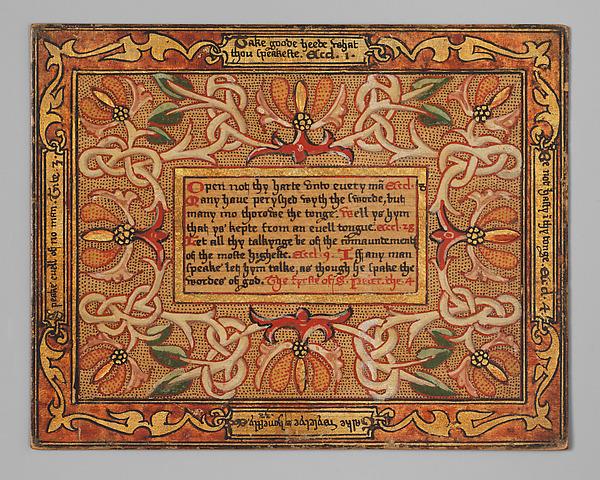 Take goode heede what
thou speakeste. Eccl. 1.
Open not thy harte unto every mā Eccl. 8
Many have peryshed wyth the sworde, but
many mo thorowe the tonge. Well ys hym
that ys kepte from an evell tongue. Eccl. 28
Let all thy talkynge be of the cōmaundement
of the moste highste. Eccl. 9. If any man
speake let hym talke, as though he spake the
wordes of god. The fyrste of S. Peter. the. 4
Be not hasty i thy tonge. Eccl. 4.
Speake evell of no man. Tite. 3.